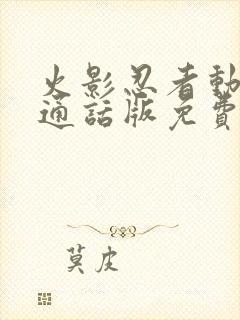 火影忍者動
通話版免費
莫皮